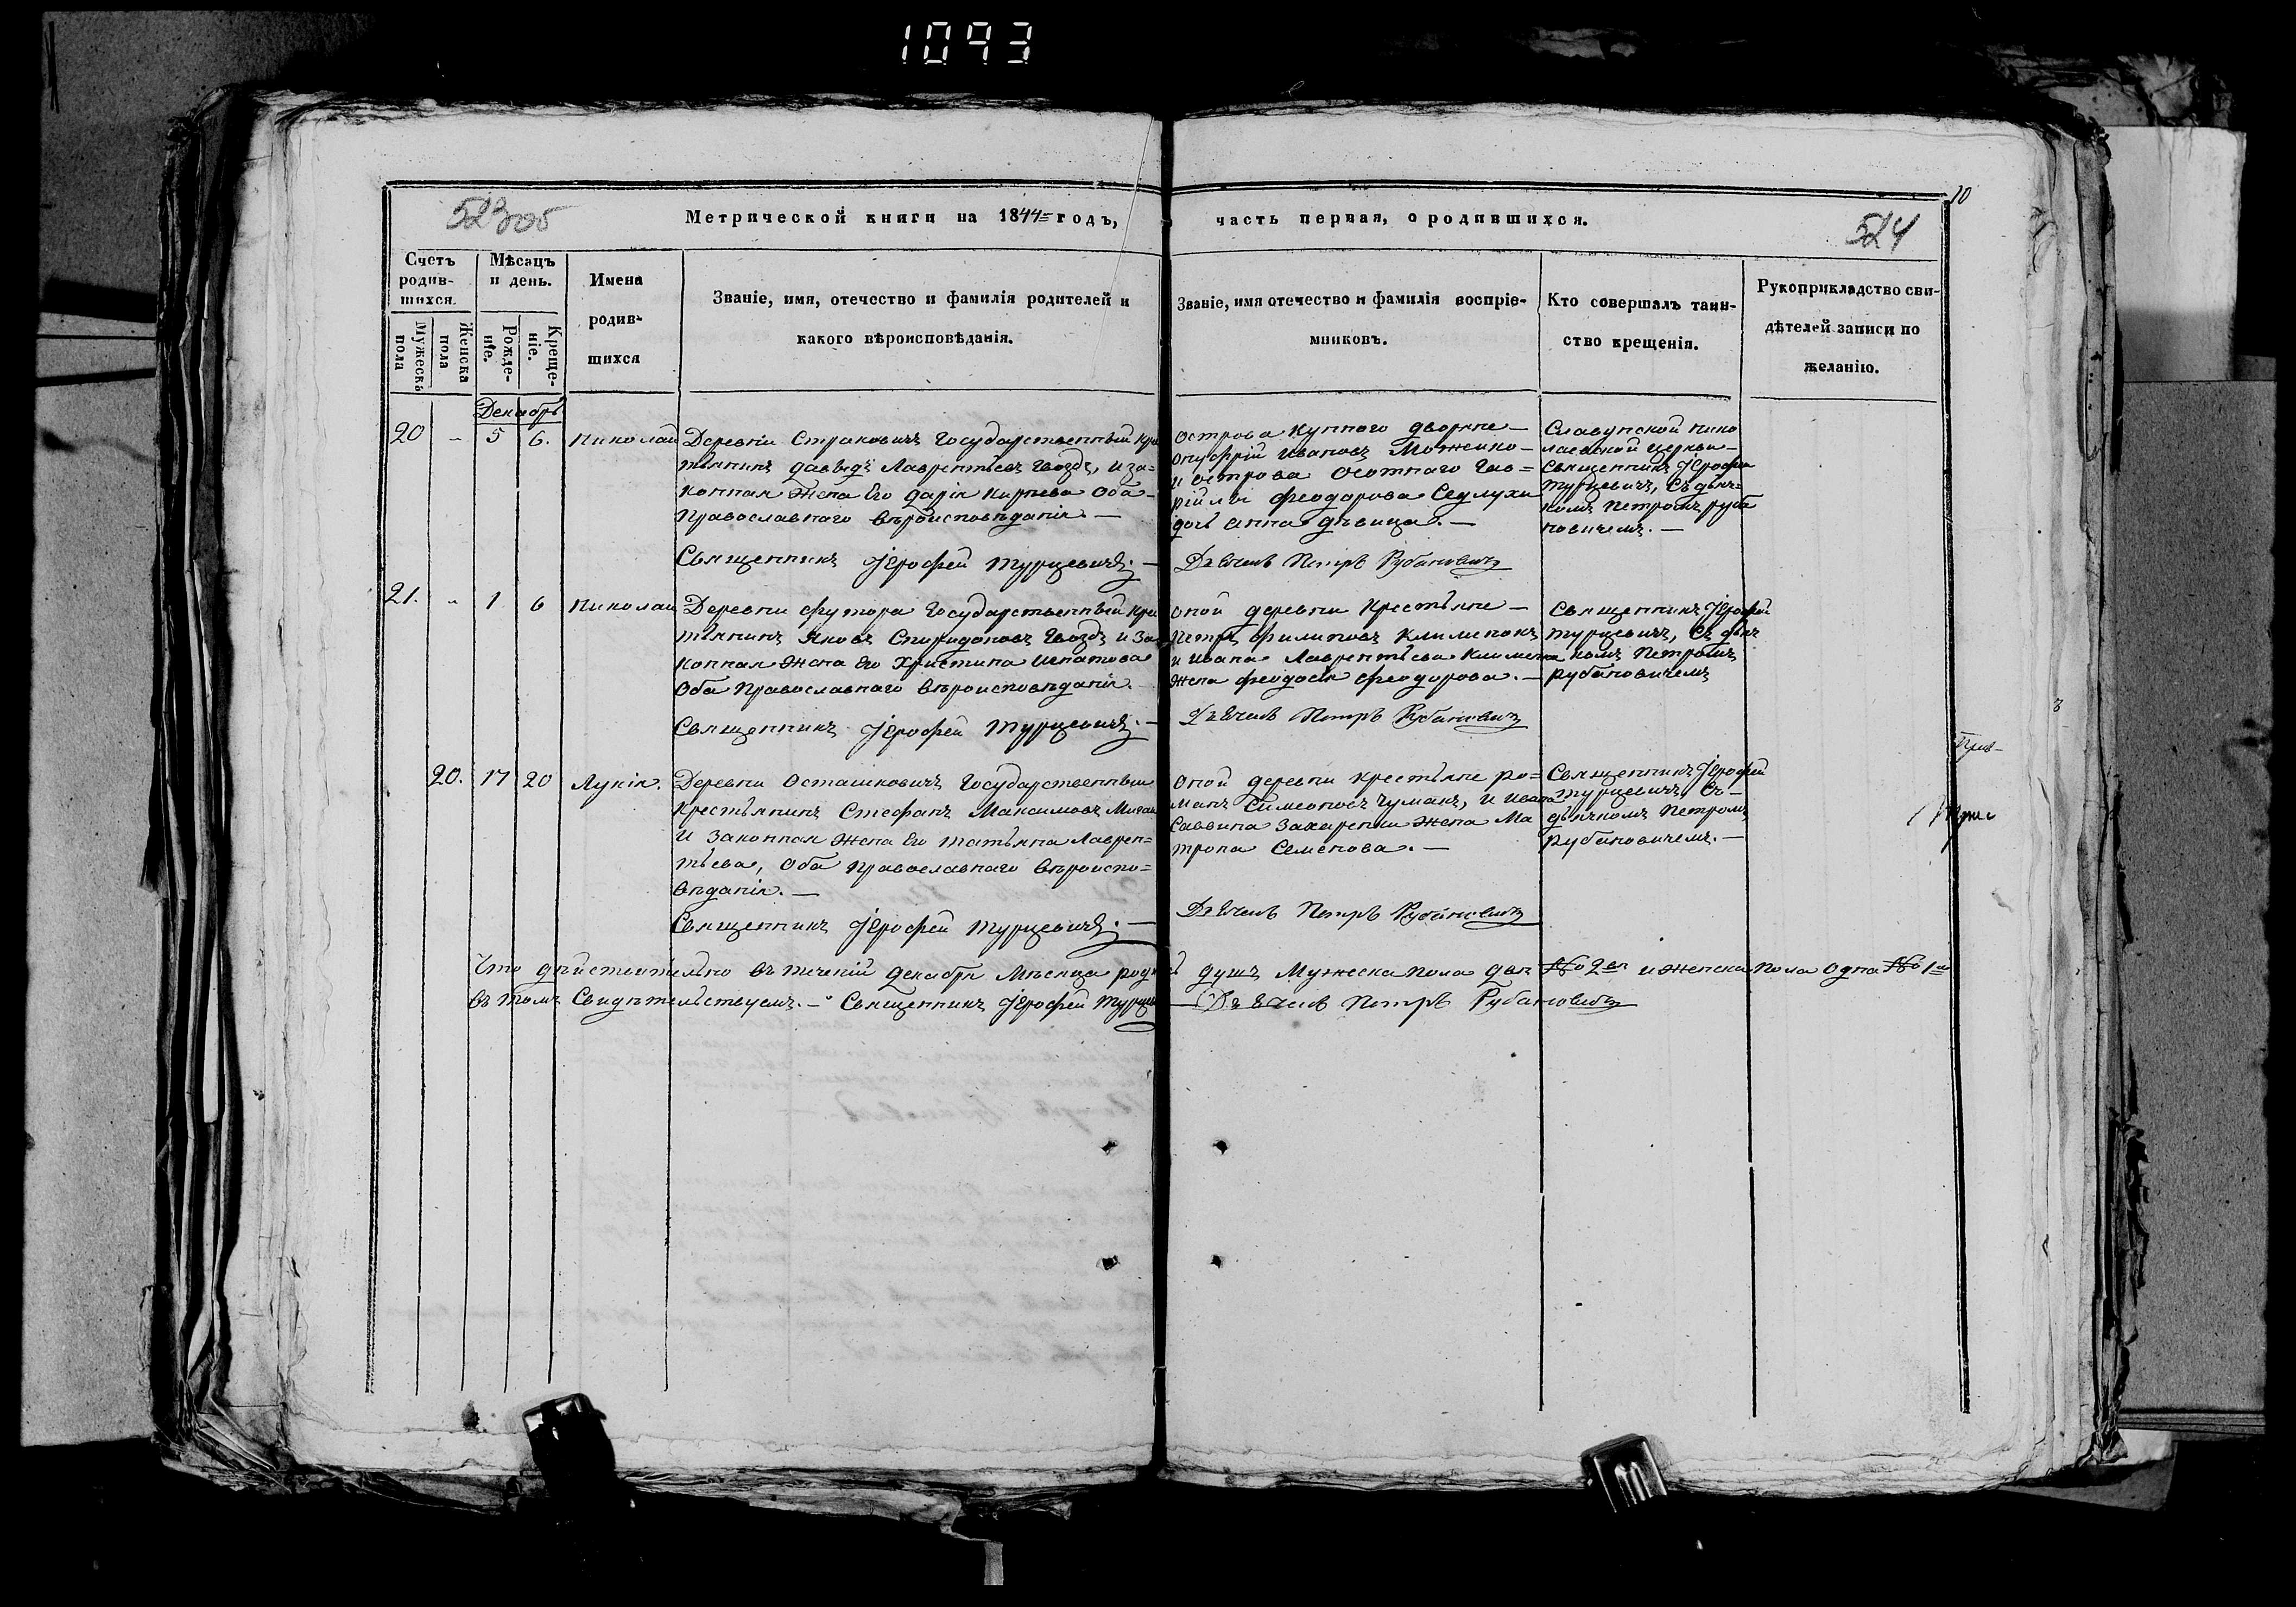 1093
10
523об
524
Метрической книги на 1844 годъ,
часть первая, о родившихся.
Счетъ родив-шихся.
Мужеска пола
Женска пола
Мѣсяцъ и день.
Рожде-ніе.
Креще-ніе.
Имена
родив-
шихся
Званіе, имя, отечество и фамилія родителей и
какого вѣроисповѣданія.
Званіе, имя отечество и фамилія воспріе-
мниковъ.
Кто совершалъ таин-
ство крещенія.
Рукоприкладство сви-
дѣтелей записи по
желанію.
Декабрь
20 " 5 6. Николай
Деревни Страковичъ Государственный кре
стьянинъ Давыдъ Лаврентьевъ Гвоздь, и за=
конная жена Его Дарія Карпова Оба
Православнаго Вѣроисповѣданія. —
Священникъ Іерофей Турцевичъ. —
острова Купного дворяне —
Онуфрій Ивановъ Можейко —
и острова Осотнаго Гав=
ріилы Феодорова Седлухи
дочь Анна дѣвица. —
Дьячекъ Петръ Рубановичъ
Славупской Нико
лаевской церкви —
Священникъ Іерофей
Турцевичъ, Съ дьяч=
комъ Петромъ Руба
новичемъ. —
21. " 1 6 Николай
Деревни Футора Государственный кре
стьянинъ Яковъ Спиридоновъ Гвоздь и За
конная жена Его Христина Игнатова
Оба Православнаго Вѣроисповѣданія.
Священникъ Іерофей Турцевичъ. —
Оной деревни Крестьяне —
Петръ Филиповъ
и Ивана Лаврентьева
жена Феодосія Феодорова. —
Дьячекъ Петръ Рубановичъ
Священникъ Іерофей
Турцевичъ, Съ дьяч
комъ Петромъ
Рубановичемъ
20. 17 20 Лукія.
Деревни Осташковичъ Государственный
Крестьянинъ Стефанъ Максимовъ
И Законная жена Его Татьяна Лаврен=
тьева, Оба Православнаго Вѣроиспо=
вѣданія. —
Священникъ Іерофей Турцевичъ. —
Оной деревни крестьяне Ро=
манъ Симеоновъ Чуманъ, и Ивана
Саввина Захаренки жена Ма
трона Семенова. —
Дьячекъ Петръ Рубановичъ
Священникъ Іерофей
Турцевичъ Съ —
дьячкомъ Петромъ
Рубановичемъ. —
Что дѣйствительно въ теченіи Декабря Мѣсяца душъ Мужеска пола два 2 и женска пола одна 1
въ томъ Свидѣтельствуемъ. — Священникъ Іерофей
Дьячекъ Петръ Рубановичъ